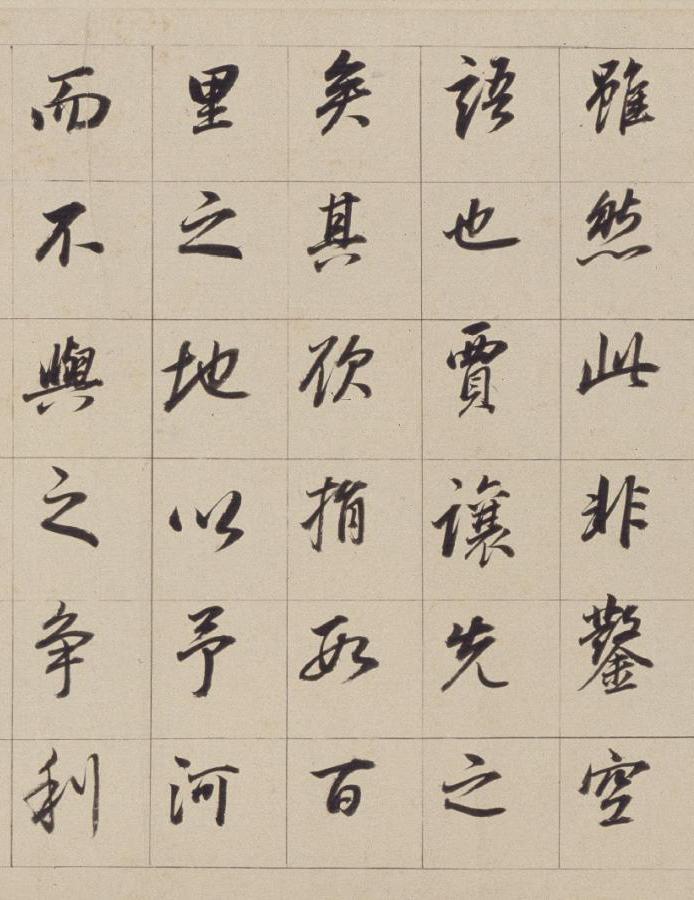 雖然此非鑿空
語也賈讓先之
矣其欲捐數百
里之地以予河
而不與之爭利